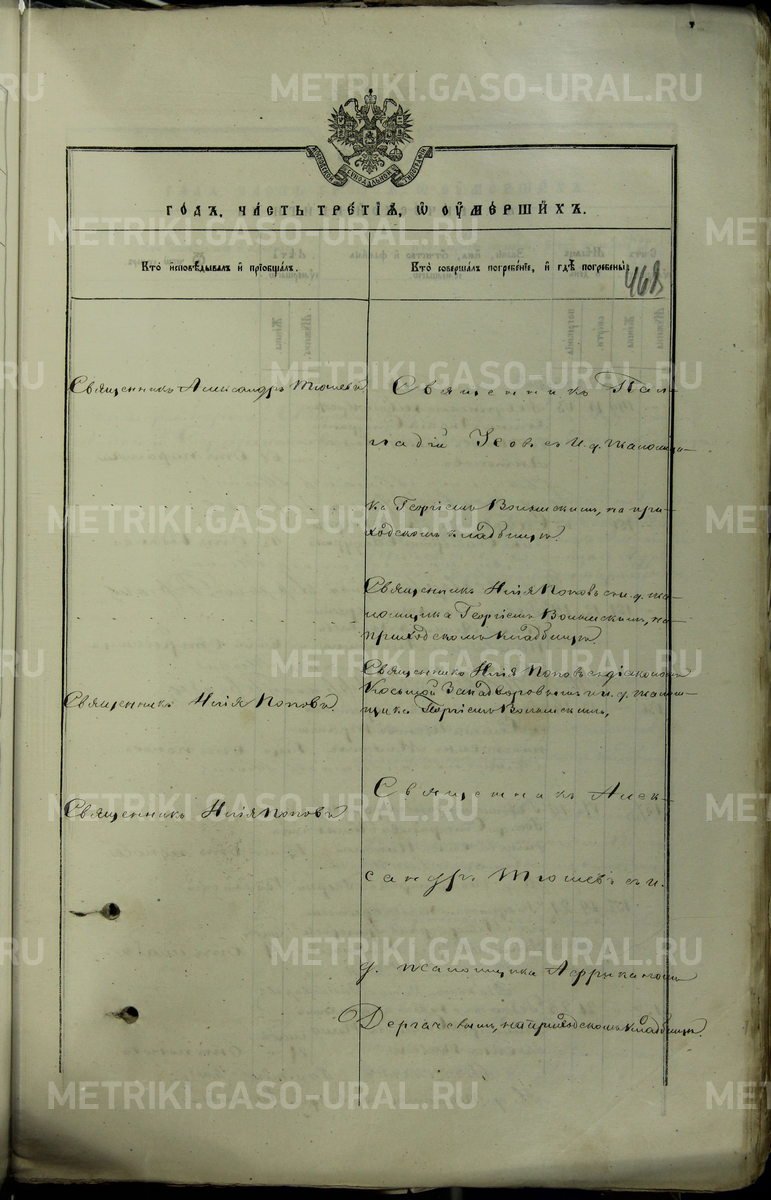 METRIKI.GASO-URAL.RU
МОСКОВСКОЙ СѴНОДАЛЬНОЙ ТИПОГРАФІИ
ГОДЪ, ЧАСТЬ ТРЕТІЯ, Ѡ ОУМЕРШИХЪ.
Кто исповѣдывалъ и пріобщалъ.
Кто совершалъ погребеніе, и гдѣ погребены
468
Священникъ Александръ Тюшевъ
Священникъ Пал-
ладій и. д. псаломщи-
ка Георгіемъ на при-
ходскомъ кладбищѣ.
Священникъ Илія Поповъ съ и. д. пса-
ломщика Георгіемъ на
приходскомъ кладбищѣ.
Священникъ Илія Поповъ
Священникъ Илія Поповъ съ діакономъ
Косьмой Западворовымъ и и. д. псалом-
щика Георгіемъ
Священникъ Илія Поповъ
Священникъ Алек-
сандръ Тюшевъ съ и.
д. псаломщика Африканомъ
Дергачевымъ, на приходскомъ кладбищѣ.